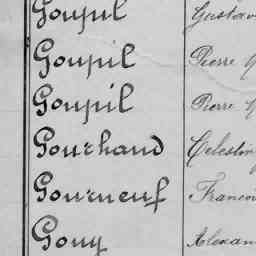 Goupil Gustav
Goupil Pierre
Goupil Pierre
Gourhand Celestin
Gourneuf Francoi
Gouy Alexan